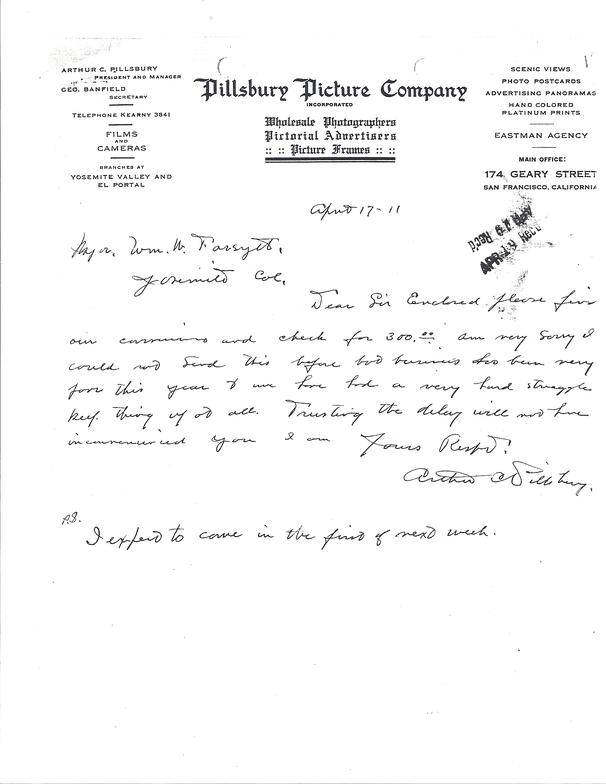 ARTHUR C. PILLSBURY
PRESIDENT AND MANAGER
GEO. BANFIELD
SECRETARY
TELEPHONE KEARNY 3841
FILMS
AND
CAMERAS
BRANCHES AT
YOSEMITE VALLEY AND
EL PORTAL
Pillsbury Picture Company
INCORPORATED
Wholesale Photographers
Pictorial Advertisers
:: :: Picture Frames :: ::
SCENIC VIEWS
PHOTO POSTCARDS
ADVERTISING PANORAMAS
HAND COLORED
PLATINUM PRINTS
EASTMAN AGENCY
MAIN OFFICE:
174 GEARY STREET
SAN FRANCISCO, CALIFORNIA
April 17-11
Major. Wm. W. Forsyth.
Yosemite Cal.
Dear Sir Enclosed please find
our and check for 300.00 am very sorry I
could not send this before but business has been very
poor this year & we have had a very hard struggle
keep thing up at all. Trusting the delay will not have
inconvenienced you I am Yours Respt!
Arthur C Pillsbury.
P.S.
I expect to come in the first of next week.
REC'D
APR 19